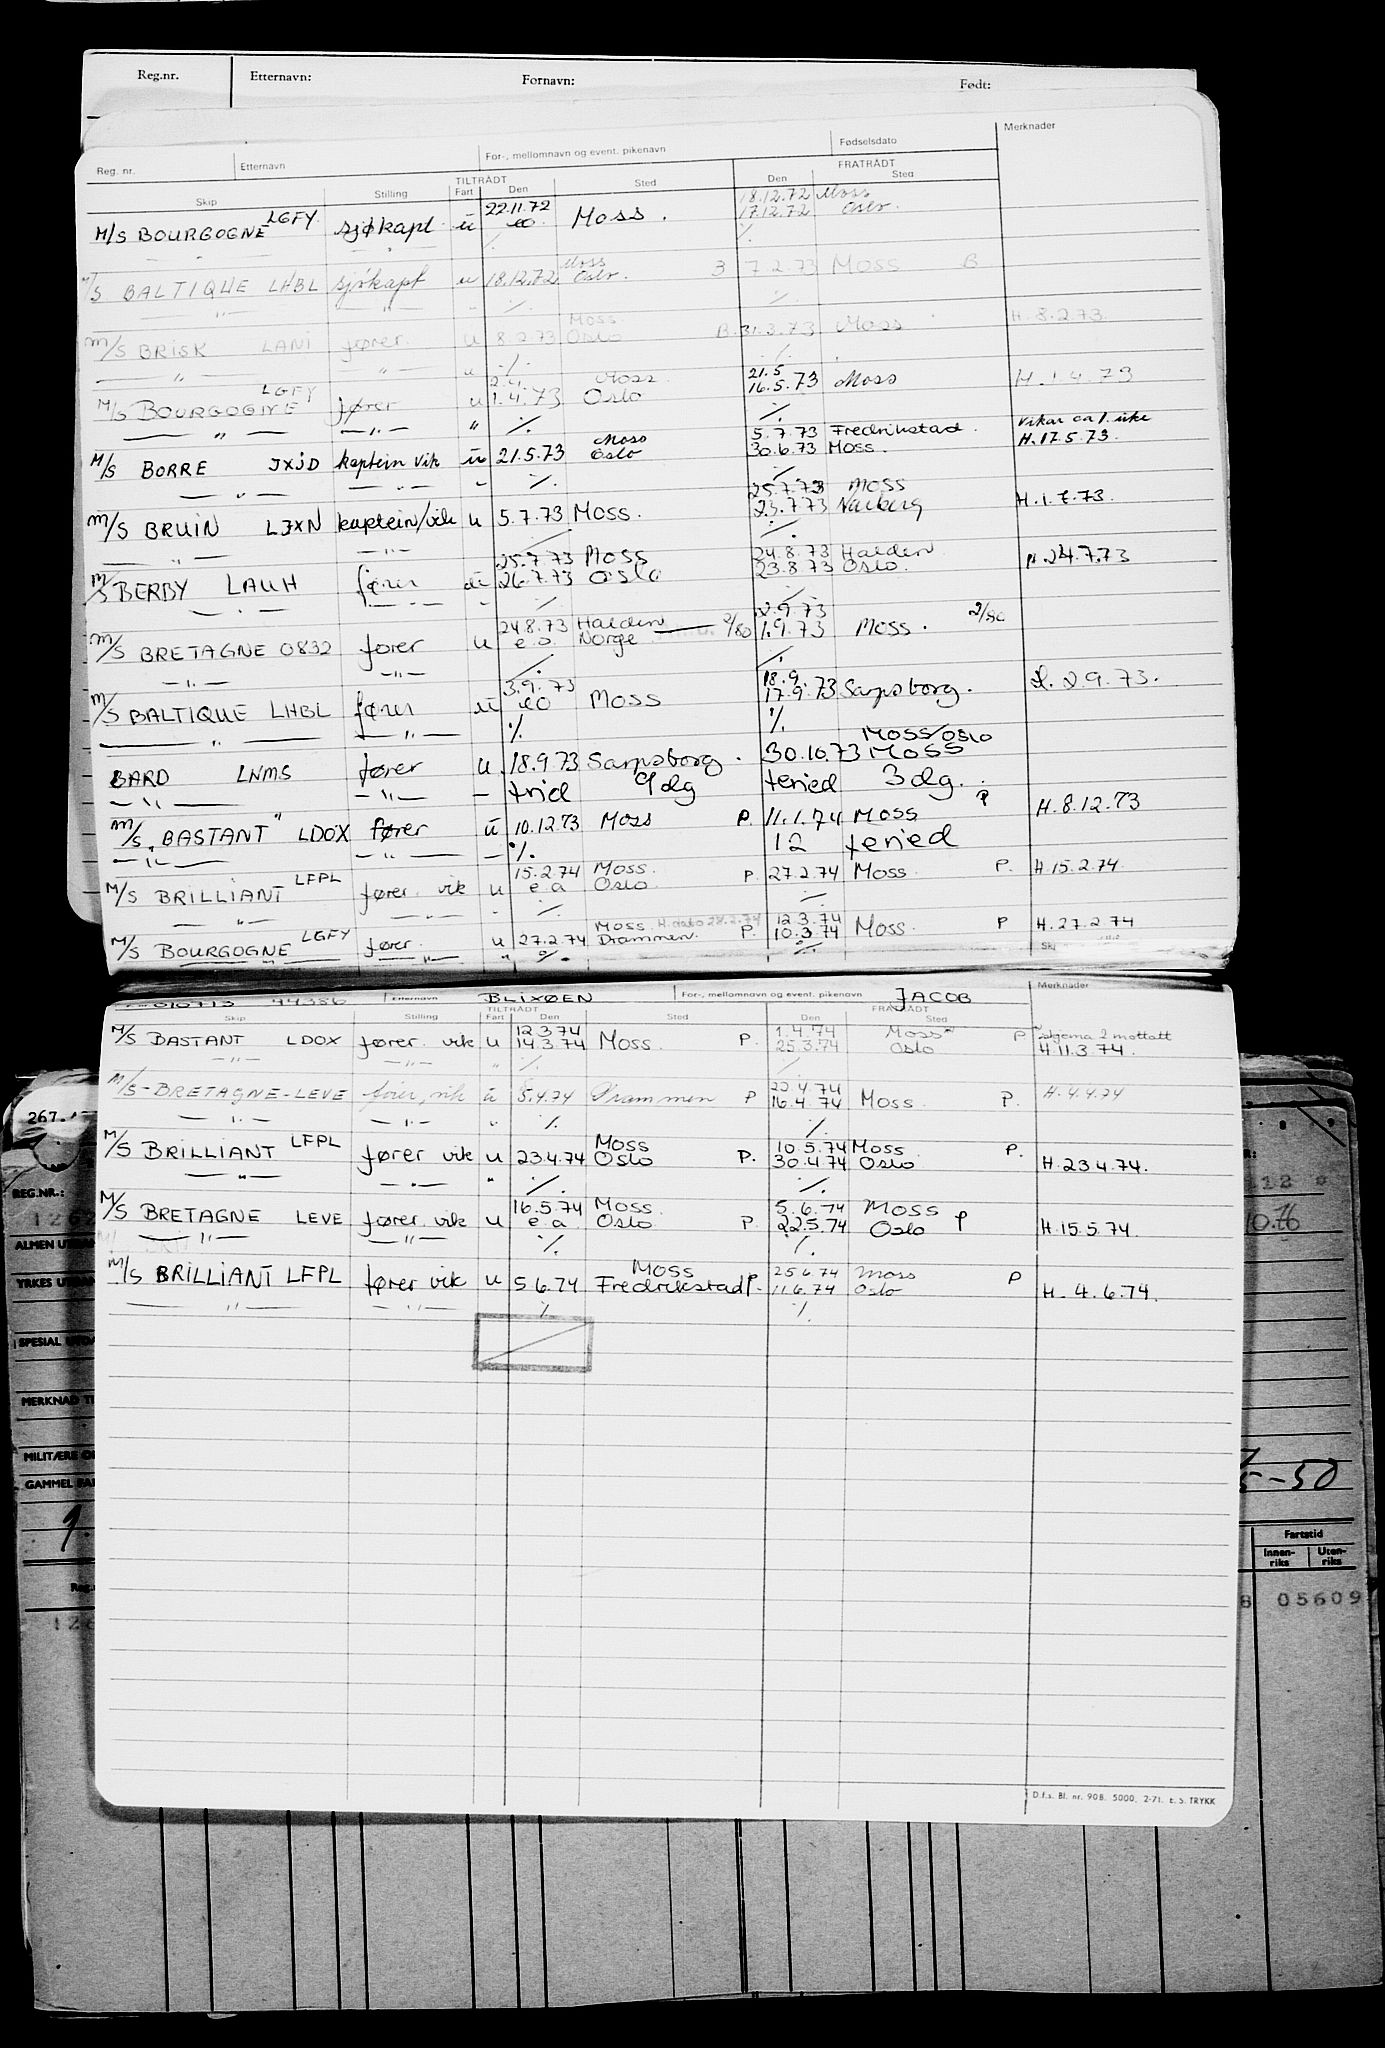 Reg.nr. Etternavn: Fornavn: Født:
Reg. nr. Etternavn For-, mellomnavn og event. pikenavn Fødselsdato Merknader
TILTRÅDT FRATRÅDT
Skip Stilling Fart Den Sted Den Sted
22.11.72 18.12.72 Moss
M/S BOURGOGNE LGFY sjøkapt. u eo Moss. 17.12.72 Oslo.
" " ./. ./.
Moss
M/S BALTIQUE LHBL sjøkapt u 18.12.72 Oslo. B 7.2.73 MOSS B
" " ./. ./.
Moss
M/S BRISK LANI fører. u 8.2.73 Oslo B. 31.3.73 Moss H.8.2.73.
" " u ./. ./.
2.4. Moss 21.5
M/S BOURGOGNE LGFY fører u 1.4.73 Oslo 16.5.73 Moss H.1.4.73
" " " ./. ./.
Moss 5.7.73 Fredrikstad. vikar ca 1. uke
M/S BORRE JXJD kaptein vik u 21.5.73 Oslo 30.6.73 Moss. H.17.5.73.
" " " ./. ./.
25.7.73 Moss
M/S BRUIN LJXN kaptein/vik u 5.7.73 Moss. 23.7.73 Varberg H.1.7.73.
" " ./. ./.
25.7.73 Moss 24.8.73 Halden
M/S BERBY LAUH fører u 26.7.73 Oslo 23.8.73 Oslo. H.24.7.73
" " ./. ./.
24.8.73 Halden 2.9.73
M/S BRETAGNE 0832 fører u e.o. Norge 2/80 1.9.73 Moss. 2/80
" " ./. ./.
3.9.73 18.9.
M/S BALTIQUE LHBL fører u eo Moss 17.9.73 Sarpsborg. H. 2.9.73.
" " ./. ./.
Moss/Oslo
BARD LNMS fører u 18.9.73 Sarpsborg. 30.10.73 Moss
" " frid 9 dg feried 3 dg.
M/S "BASTANT" LDOX fører u 10.12.73 Moss P. 11.1.74 Moss P H.8.12.73
" " ./. 12 feried
15.2.74 Moss.
M/S BRILLIANT LFPL fører. vik u e a Oslo P. 27.2.74 Moss P. H.15.2.74
" " ./. ./.
Moss H.dato 28.2.74 12.3.74
M/S BOURGOGNE LGFY fører. u 27.2.74 Drammen. P. 10.3.74 Moss. P H.27.2.74
" " " ./. ./.
010713 44386 Etternavn BLIXØEN For-, mellomnavn og event. pikenavn JACOB Merknader
TILTRÅDT FRATRÅDT
Skip Stilling Fart Den Sted Den Sted
12.3.74 1.4.74 Moss
M/S BASTANT LDOX fører. vik u 14.3.74 Moss. P. 25.3.74 Oslo P skjema 2 mottatt H.11.3.74.
" " " ./. ./.
22.4.74
M/S-BRETAGNE-LEVE fører, vik u 5.4.74 Drammen P 16.4.74 Moss. P. H.4.4.74
" " " ./. ./.
Moss 10.5.74 Moss.
M/S BRILLIANT LFPL fører vik u 23.4.74 Oslo P. 30.4.74 Oslo P. H.23.4.74.
" " " ./. ./.
16.5.74 Moss. 5.6.74 Moss
M/S BRETAGNE LEVE fører. vik u e a Oslo P. 22.5.74 Oslo P H.15.5.74.
" " ./. ./.
Moss 25.6.74 Moss
M/S BRILLIANT LFPL fører vik u 5.6.74 Fredrikstad P. 11.6.74 Oslo P H. 4.6.74.
" " ./. ./.
D.f.s. Bl. nr. 90B. 5000. 2-71. E. S. TRYKK
267.
REG.NR.: 112
ALMEN
YRKES
SPESIAL
MERKNAD
MILITÆRE
GAMMEL
5-50
Fartstid
Innen-riks Uten-riks
05609